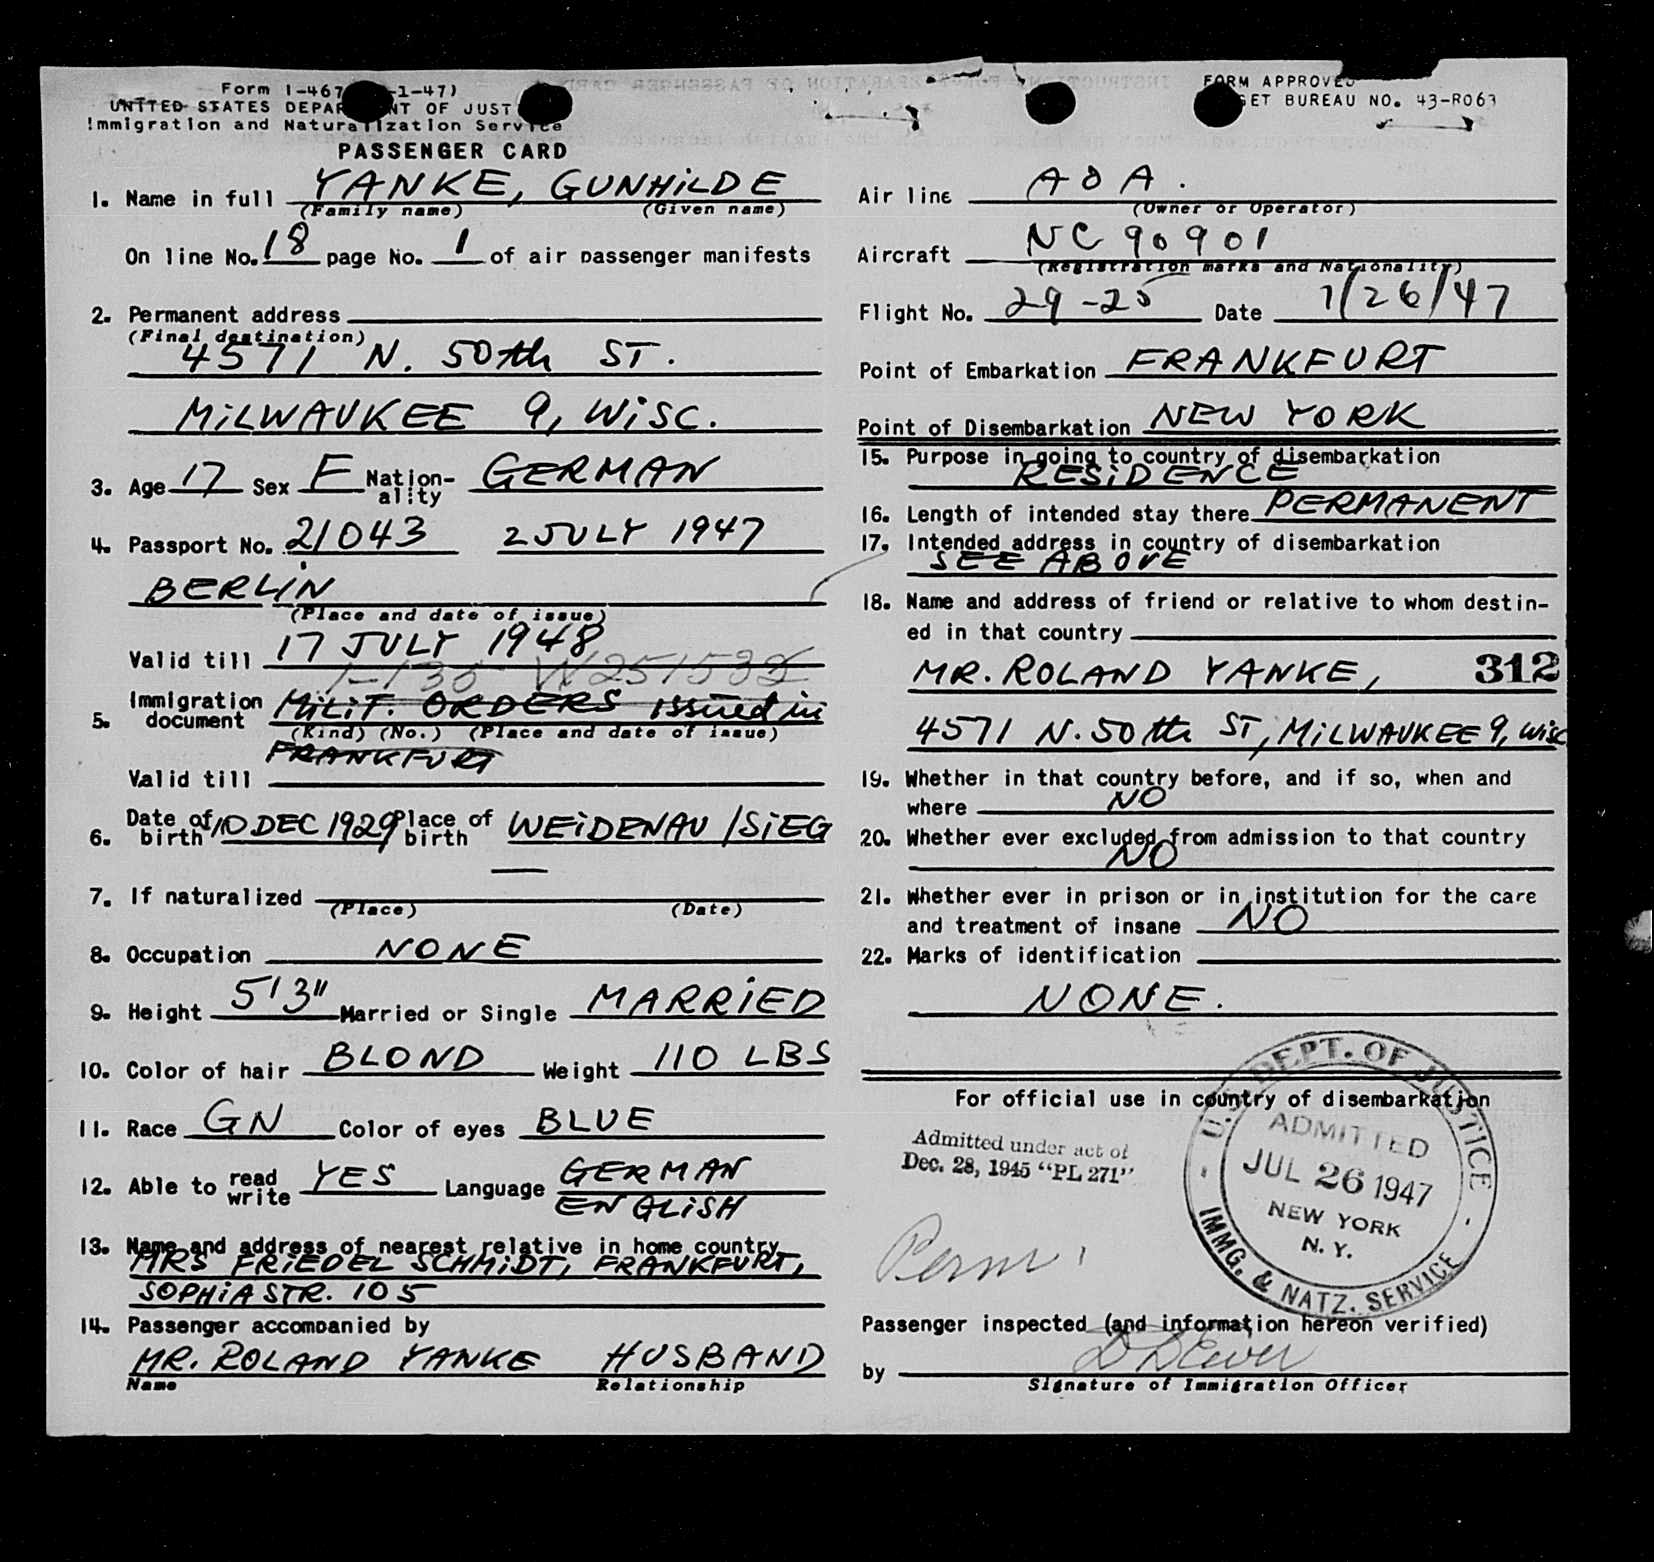 Form I-467 -1-47)
UNITED STATES DEPARTMENT OF JUSTICE
Immigration and Naturalization Service
PASSENGER CARD
1. Name in full YANKE, GUNHILDE
(Family name) (Given name)
On line No. 18 page No. 1 of air passenger manifests
2. Permanent address
(Final destination)
4571 N. 50th ST.
MILWAUKEE 9, WISC.
3. Age 17 Sex F Nation-ality GERMAN
4. Passport No. 21043 2 JULY 1947
BERLIN
(Place and date of issue)
Valid till 17 JULY 1948
I-130
5. Immigration document MILIT. ORDERS issued in
(Kind) (No.) (Place and date of issue)
FRANKFURT
Valid till
6. Date of birth 10 DEC 1929 Place of birth WEIDENAU/SIEG
7. If naturalized —
(Place) (Date)
8. Occupation NONE
9. Height 5'3" Married or Single MARRIED
10. Color of hair BLOND Weight 110 LBS
11. Race GN Color of eyes BLUE
12. Able to read write YES Language GERMAN
ENGLISH
13. Name and address of nearest relative in home country
MRS FRIEDEL SCHMIDT, FRANKFURT,
SOPHIASTR. 105
14. Passenger accompanied by
MR. ROLAND YANKE HUSBAND
Name Relationship
FORM APPROVED
BUDGET BUREAU NO. 43-R063
Air line AOA.
(Owner or Operator)
Aircraft NC 90901
(Registration marks and Nationality)
Flight No. 29-25 Date 7/26/47
Point of Embarkation FRANKFURT
Point of Disembarkation NEW YORK
15. Purpose in going to country of disembarkation
RESIDENCE
16. Length of intended stay there PERMANENT
17. Intended address in country of disembarkation
SEE ABOVE
18. Name and address of friend or relative to whom destin-
ed in that country
MR. ROLAND YANKE, 312
4571 N. 50th ST, MILWAUKEE 9, WISC
19. Whether in that country before, and if so, when and
where NO
20. Whether ever excluded from admission to that country
NO
21. Whether ever in prison or in institution for the care
and treatment of insane NO
22. Marks of identification
NONE.
For official use in country of disembarkation
Admitted under act of
Dec. 28, 1945 "PL 271"
U.S. DEPT. OF JUSTICE
ADMITTED
JUL 26 1947
NEW YORK
N. Y.
IMMG. & NATZ. SERVICE
Perm.
Passenger inspected (and information hereon verified)
by
Signature of Immigration Officer